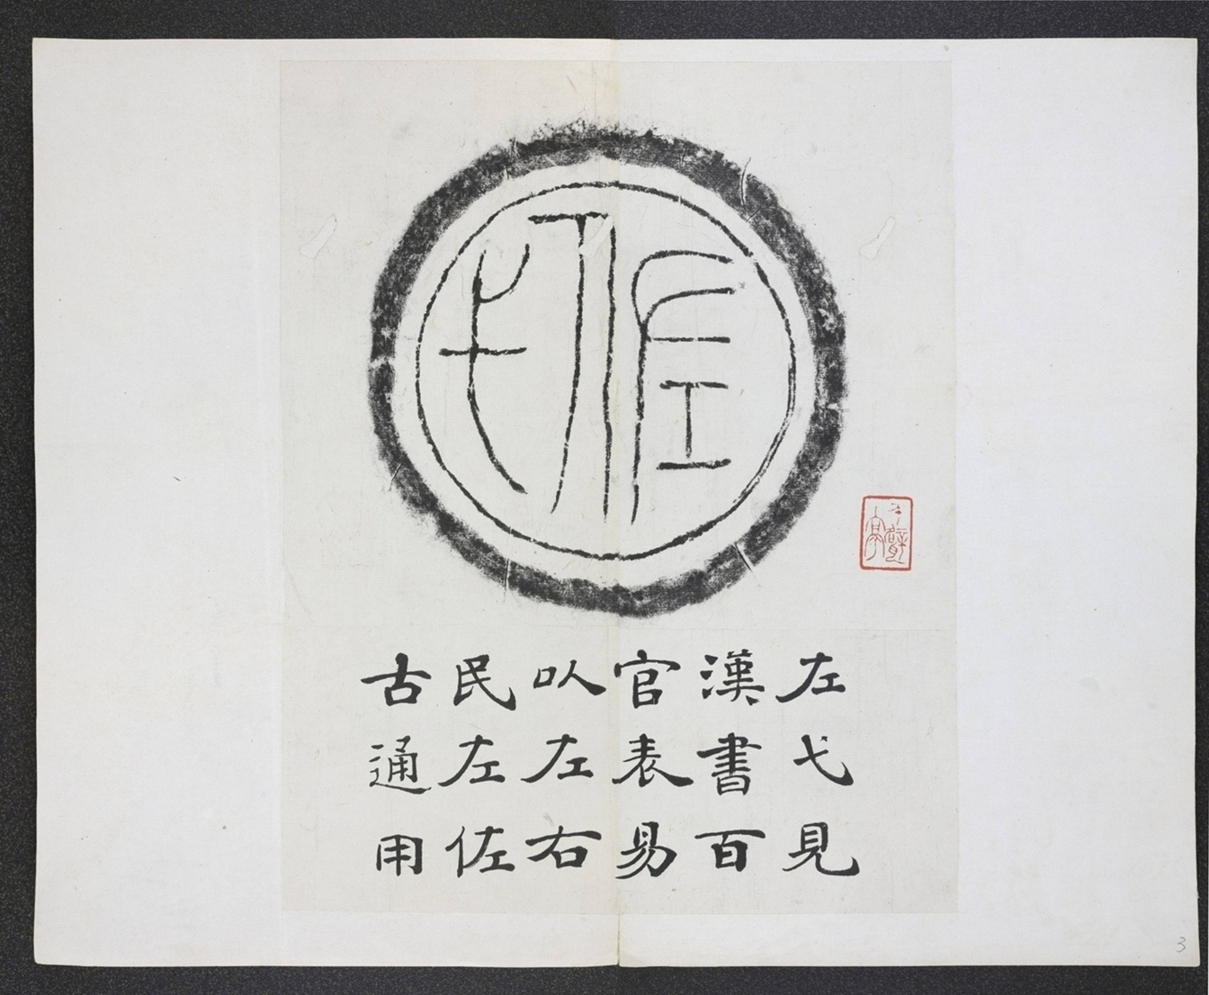 佐弋
千甓
亭
左弋見
漢書百
官表易
以左右
民左佐
古通用
3